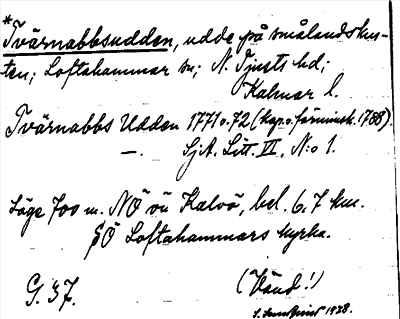 *Tvärnabbsudden, udde på smålandskus-
ten; Loftahammar sn; N. Tjusts hd;
Kalmar l.
Tvärnabbs Udden 1771 o. 72 (Kap. o. förminsk. 1788).
—. SjK. Litt. VI, N:o 1.
Läge 700 m. NÖ om Kalvö, bel. 6,7 km.
SÖ Loftahammars kyrka.
G. 37. (Vänd!)
1938.